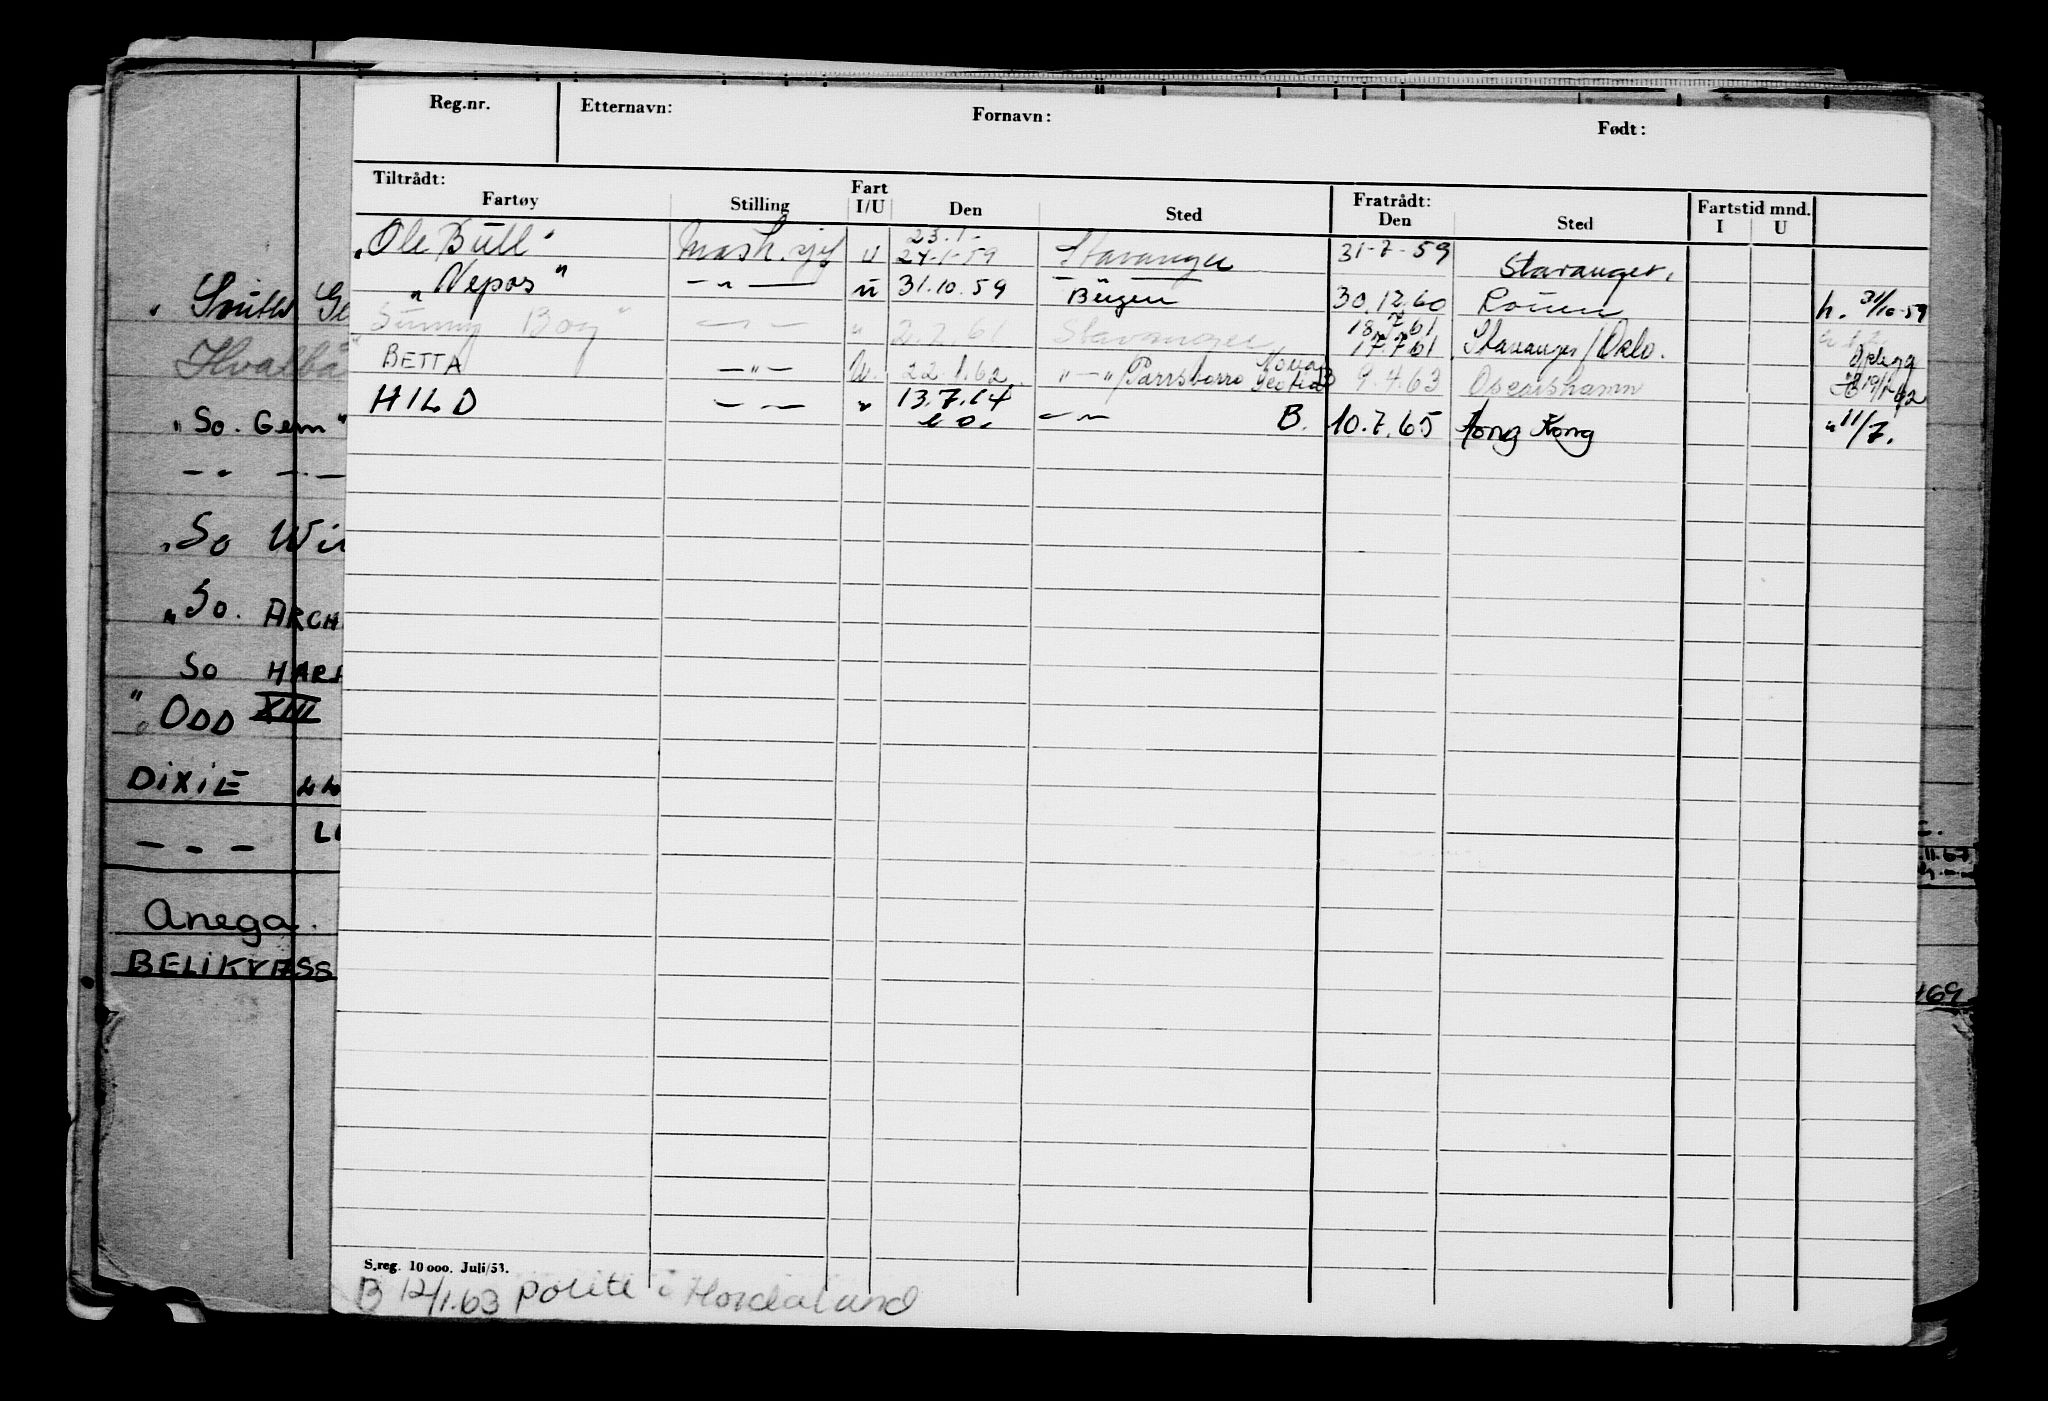 Reg.nr. Etternavn: Fornavn: Født:
Tiltrådt: Fart Fratrådt: Fartstid mnd.
Fartøy Stilling I/U Den Sted Den Sted I U
23.1-
"Ole Bull" Mask.sjef u 24.1-59 Stavanger 31-7-59 Stavanger.
"Nepos" -"- u 31.10.59 Bergen 30.12.60 Rouen h. 31/10-59
18.7.61
Sunny Boy" -"- " 2.2.61 Stavanger 17.7.61 Stavanger/Oslo.
Opplegg
BETTA -"- U. 22.1.62. "-" Parrsborro Nova Scotia 9.4.63 Oscarshamn 19/1-62
HILD -"- " 13.7.64 -"- B. 10.7.65 Hong Kong " 11/7.
e.o.
South Ge
Hvalbå
"So. Gem"
-"- -"-
"So Wi
"So. ARCH
So HAR
"ODD XIII
DIXIE
- " - L
Anega.
BELIKVESS
.11.67
69
S.reg. 10 000. Juli/53.
B 12/1.63 politi i Hordaland